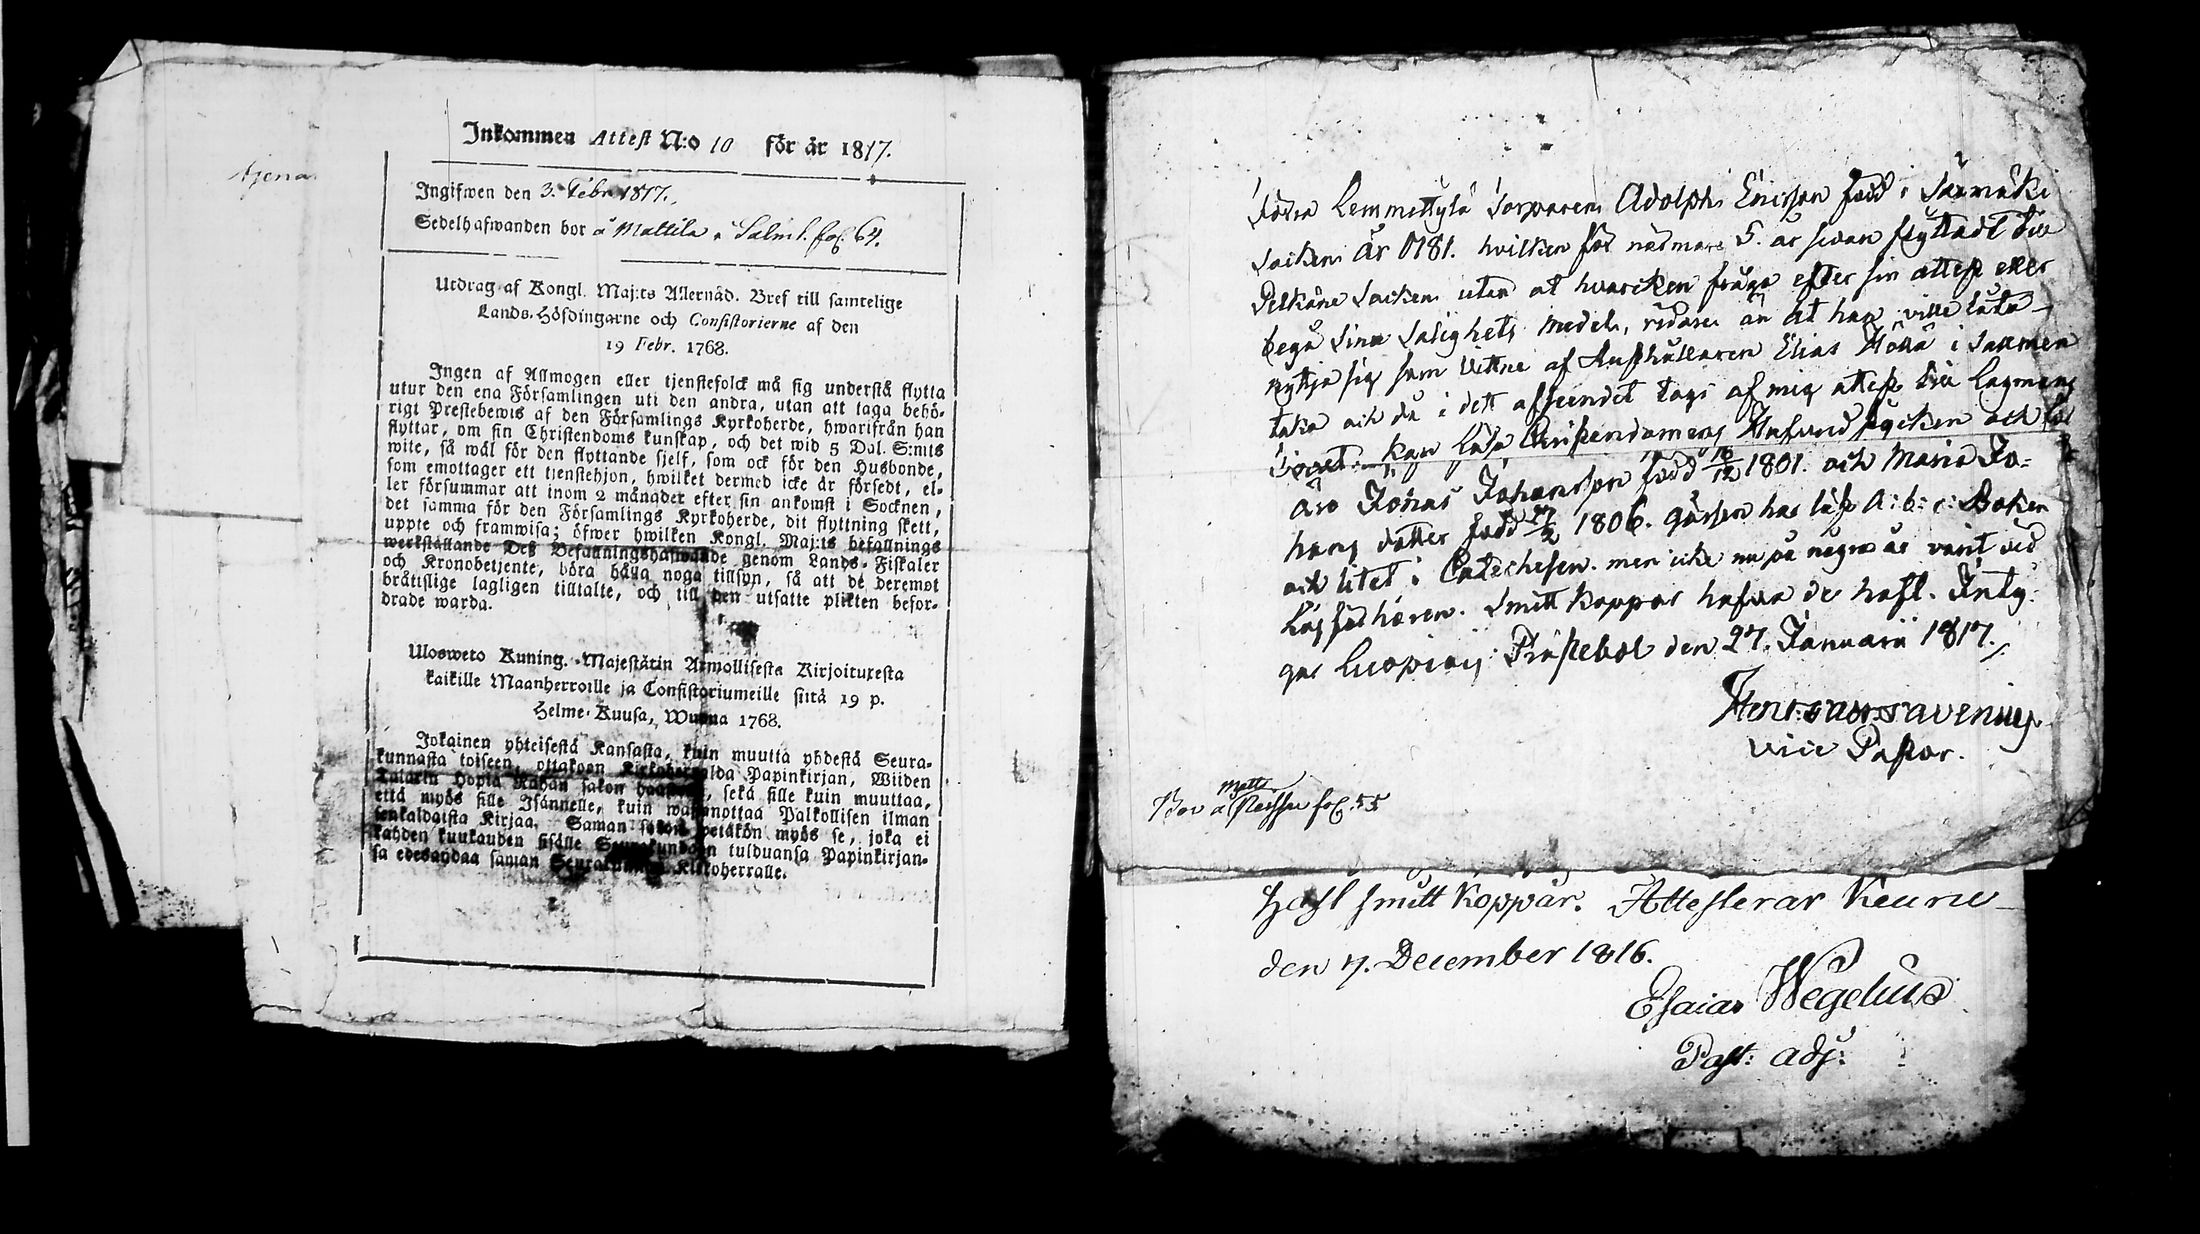 Tjena
Inkommen Attest N:o 10 för år 1817.
Ingifwen den 3. Febr. 1817.
Sedelhafwanden bor å Mattila i Salm. fol. 64.
Utdrag af Kongl. Maj:ts Allernåd. Bref till samtelige
Lands-Höfdingarne och Consistorierne af den
19 Febr. 1768.
Ingen af Allmogen eller tjenstefolck må sig understå flytta
utur den ena Församlingen uti den andra, utan att taga behö-
rigt Prestebewis af den Församlings Kyrkoherde, hwarifrån han
flyttar, om sin Christendoms kunskap, och det wid 5 Dal. S:mts
wite, så wäl för den flyttande sjelf, som ock för den Husbonde,
som emottager ett tjenstehjon, hwilket dermed icke är försedt, el-
ler försummar att inom 2 månader efter sin ankomst i Socknen,
det samma för den Församlings Kyrkoherde, dit flyttning skett,
uppte och framwisa; öfwer hwilken Kongl. Maj:ts befallnings
werkställande Deß Befallningshafwande genom Lands-Fiskaler
och Kronobetjente, böra hålla noga tillsyn, så att de deremot
bråtislige lagligen tilltalte, och till den utsatte plikten befor-
drade warda.
Ulosweto Kuning. Majestätin Armollisesta Kirjoituxesta
kaikille Maanherroille ja Consistoriumeille siitä 19 p.
Helme-Kuusa, Wuonna 1768.
Jokainen yhteisestä Kansasta, kuin muutta yhdestä Seura-
kunnasta toiseen, ottakoon Kirkoherralda Papinkirjan, Wiiden
Talarin Hopia Rahan sakon haastolla, sekä sille kuin muuttaa,
että myös sille Isännelle, kuin wastanottaa Palkollisen ilman
senkaldaista Kirjaa. Saman sakon wetäkön myös se, joka ei
kahden kuukauden sisälle Seurakundaan tulduansa Papinkirjan-
sa edesandaa saman Seurakunnan Kirkoherralle.
Lemmettylä Torparen Adolph Ericsson född i Säxmäki
Socken år 0181. hvilken för närmare 5. år sedan flyttadt till
Pelkäne Socken utan at hvarcken fråga efter sin attest eller
begå sina Salighets medel, vidare än at han ville låta
nytja sig som Vittne af Rusthållaren Elias i
taka och då i dett afseendet tagi af mig attest till Lagmans
Tinget. Kan läsa Christendomens Hufvudstycken och
äro Johas Johansson född 16/12 1801. och Maria Jo=
hans dotter född 17/2 1806. gåssen har läst A: b: c: Boken
och litet i Catechesen. men icke nu på några år varit vid
Läsförhören. Smitt koppor hafva de haft. Inty-
gar Luopiois Prästebol den 27. Januarii 1817.
Vice Pastor.
Bor å fol. 55
Haft smitt koppår. Attesterar Keuru
den 7. December 1816.
Esaias Wegelius
Past: adj: